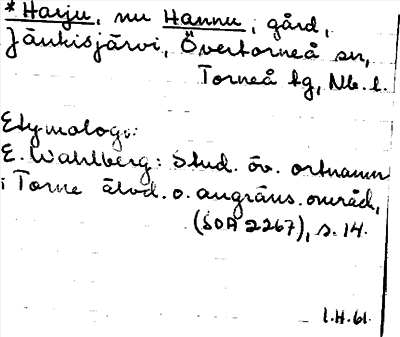 *Harju, nu Hannu, gård,
Jänkisjärvi, Övertorneå sn,
Torneå tg, Nb. l.
Etymologi:
E. Wahlberg: Stud. öv. ortnamn
i Torne älvd. o. angräns. områd,
(SOA 2267), s. 14.
l.H.61.